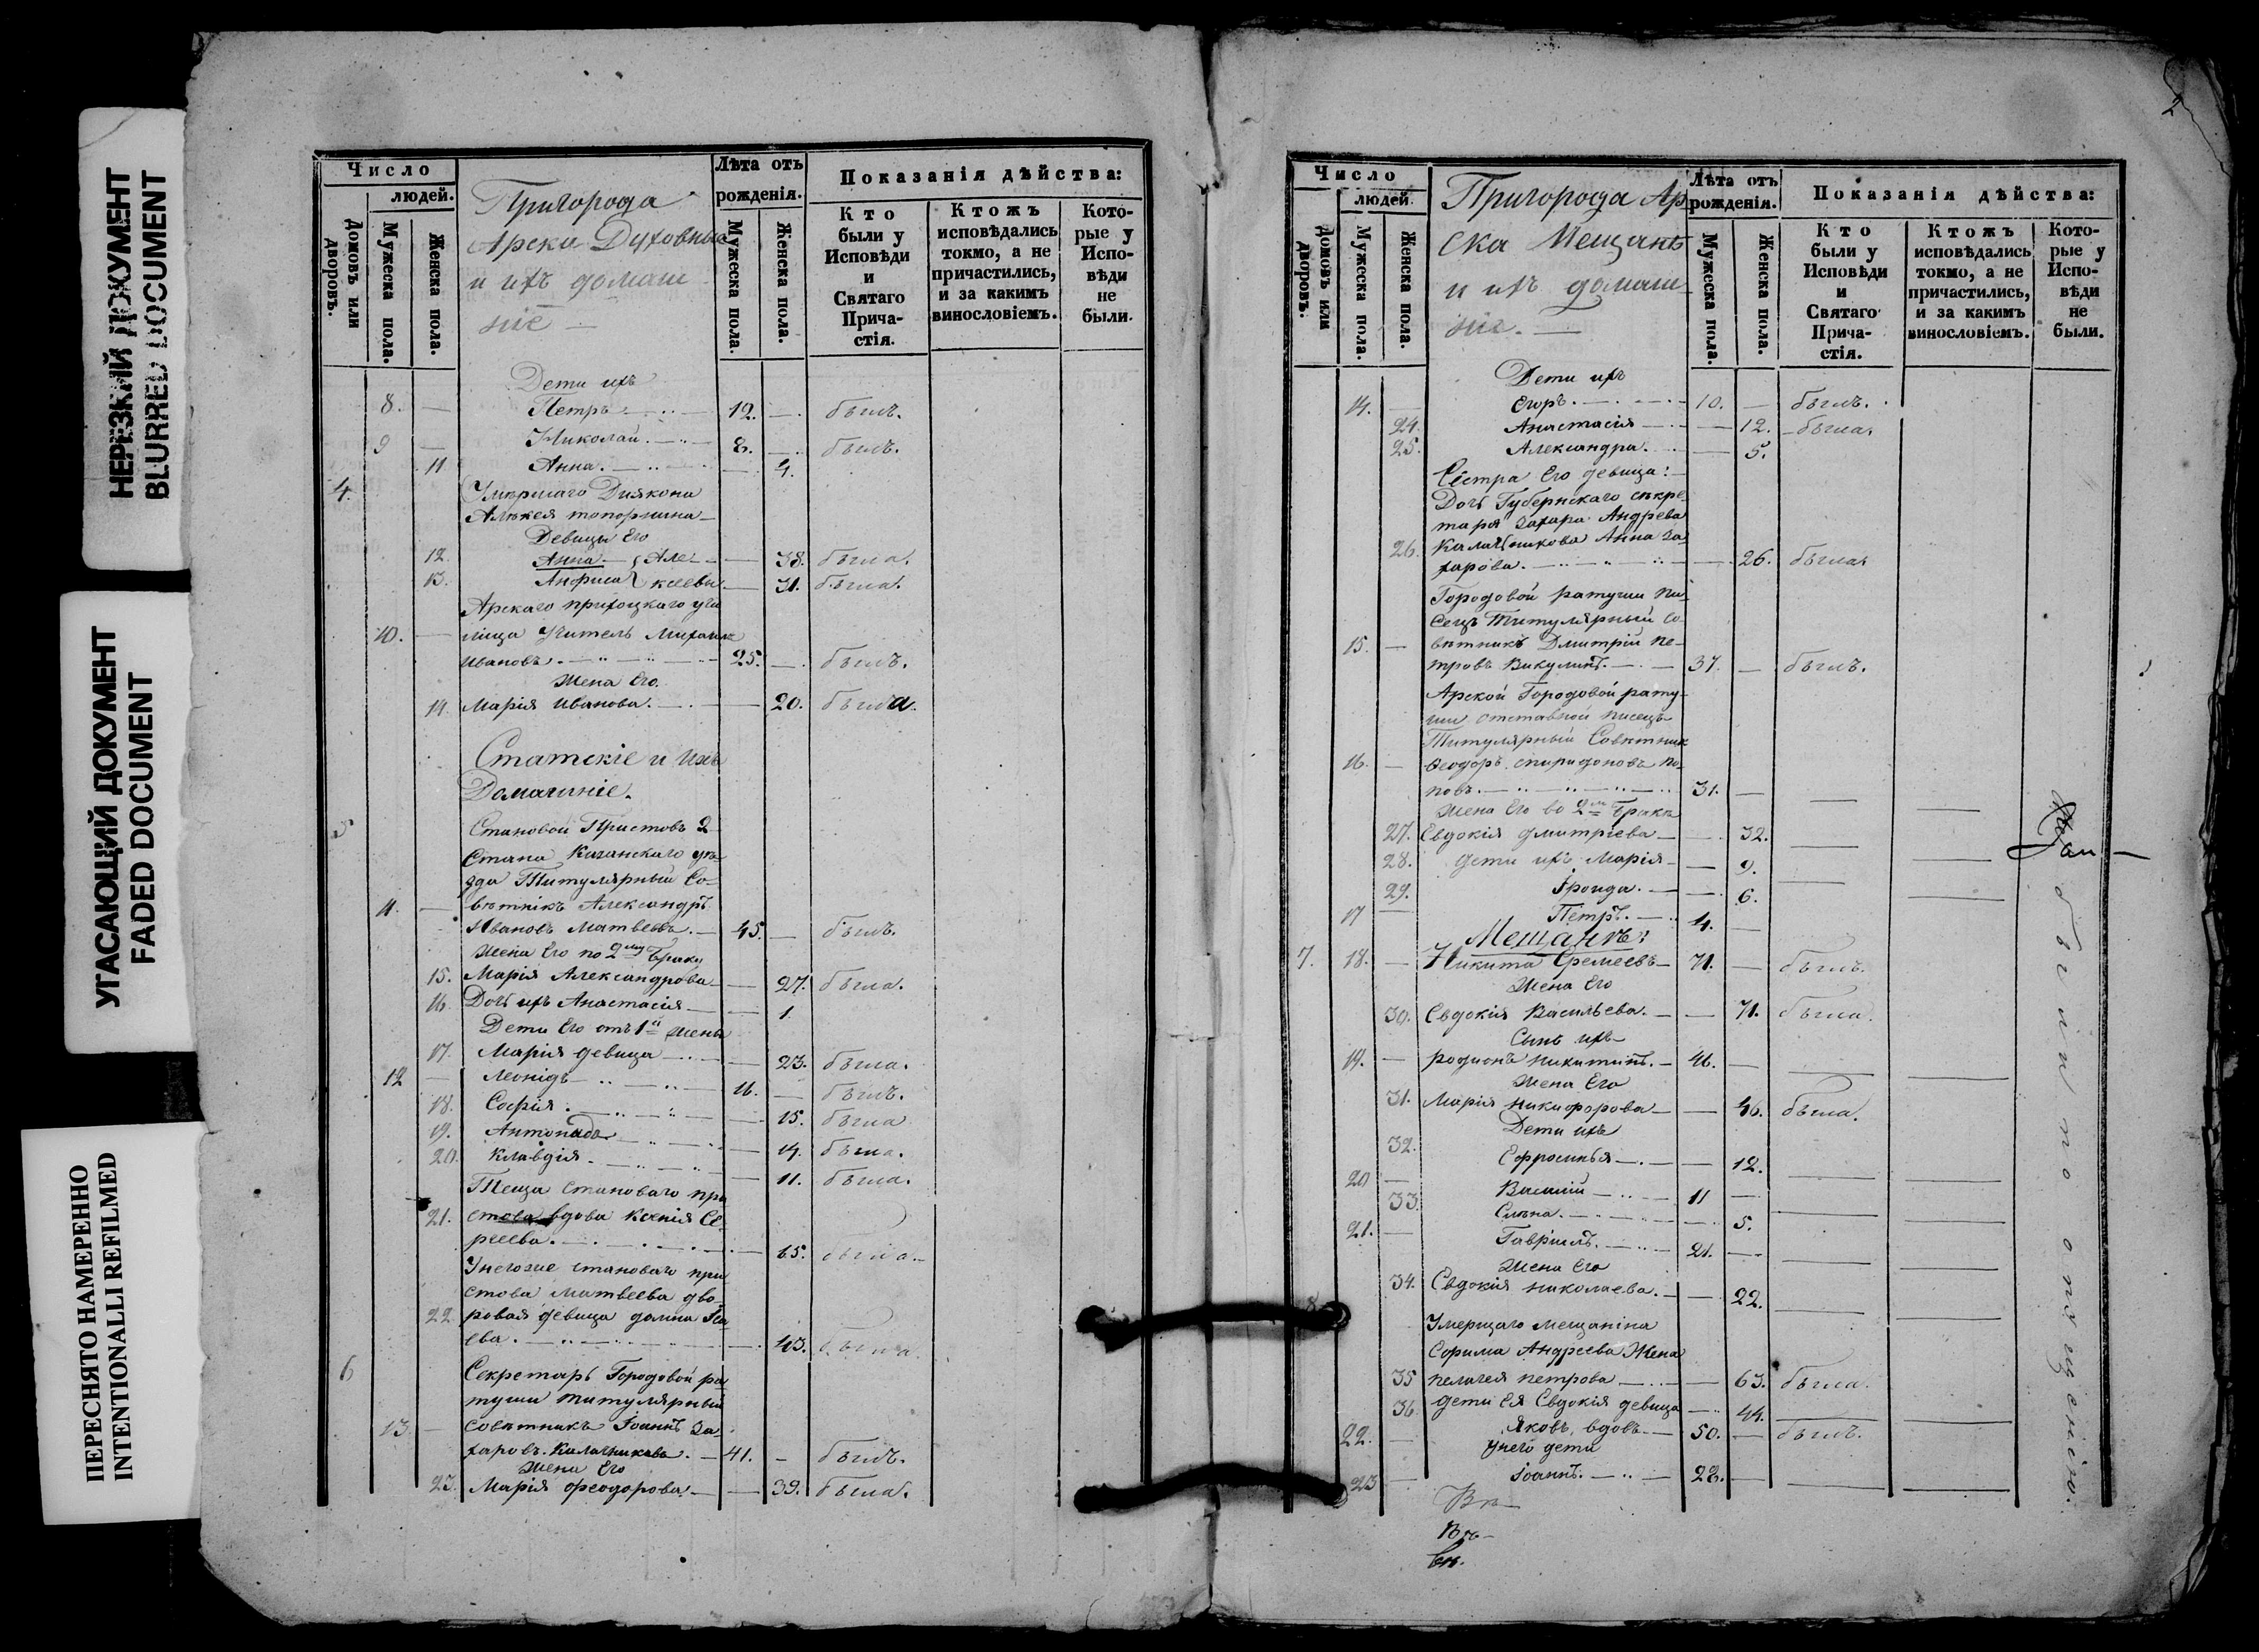 НЕРЕЗКИЙ ДОКУМЕНТ
BLURRED DOCUMENT
УГАСАЮЩИЙ ДОКУМЕНТ
FADED DOCUMENT
ПЕРЕСНЯТО НАМЕРЕННО
INTENTIONALLI REFILMED
Число
людей.
Домовъ или дворовъ.
Мужеска пола.
Женска пола.
Пригорода
Арска Духовные
и ихъ домаш
ніе —
Лѣта отъ
рожденія.
Мужеска пола.
Женска пола.
Показанія дѣйства:
Кто
были у
Исповѣди
и
Святаго
Прича-
стія.
Ктожъ
исповѣдались
токмо, а не
причастились,
и за какимъ
винословіемъ.
Кото-
рые у
Испо-
вѣди
не
были.
Дети ихъ
8. — Петръ 12. — былъ.
9 — Николай. 8. — былъ.
11 Анна. — 4.
4. Умершаго Диякона
Алексея топорнина
Девицы Его
12. Анна — Але- — 38. была.
13. Анфиса ксеевы — 31. была.
Арскаго приходскаго учи
10. — лища Учитель Михаилъ
Ивановъ. 25. — былъ.
Жена Его.
14. Марія Иванова. — 20. была.
Статскіе и Ихъ
Домашніе.
5 Становой Приставъ 2
Стана Казанскаго уѣ
зда Титулярный Со-
11. — вѣтникъ Александръ
Ивановъ Матвеевъ. — 45. — былъ.
Жена Его по 2му Браку
15. Марія Александрова — 27. была.
16. Дочь ихъ Анастасія — 1.
Дети Его отъ 1й жены
17. Марія девица — 23. была.
12 — Леонидъ 16. — былъ.
18. Софія. — 15. была
19. Антонида — 14. была.
20. Клавдія. — 11. была.
Теща становаго при
21. става вдова Ксенія Се
ргеева. — 65. была.
Унегоже становаго при
става Матвеева дво
22 ровая девица домна Иса
ева. — 43. была
6 Секретарь Городовой ра
туши титулярный
13. — совѣтникъ Іоаннъ За
харовъ Калашниковъ. — 41. — былъ.
Жена Его
23. Марія Феодорова. — 39. была.
2
Число
людей.
Домовъ или дворовъ.
Мужеска пола.
Женска пола.
Пригорода Ар
ска Мещанъ
и ихъ домаш
ніе. —
Лѣта отъ
рожденія.
Мужеска пола.
Женска пола.
Показанія дѣйства:
Кто
были у
Исповѣди
и
Святаго
Прича-
стія.
Ктожъ
исповѣдались
токмо, а не
причастились,
и за какимъ
винословіемъ.
Кото-
рые у
Испо-
вѣди
не
были.
Дети ихъ
14. — Егоръ. 10. — былъ.
24. Анастасія — 12. была.
25. Александра. — 5.
Сестра Его девица:
Дочь Губернскаго секре
таря Захара Андреева
26. Калашникова Анна за
харова. — 26. была.
Городовой ратуши пи
сецъ Титулярный со
15. — вѣтникъ Дмитрій пе-
тровъ Викулинъ. — 37. — былъ.
Арской Городовой рату-
ши отставной писецъ
Титулярный Совѣтник
16. — Феодоръ спиридоновъ по
повъ. 31. —
Жена Его во 2мъ Бракѣ
27. Евдокія дмитріева — 32.
28. дети ихъ Марія — 9.
29. Іроида. — 6.
17 — Петръ. 4. —
Мещанъ:
7. 18. — Никита Еремеевъ — 71. — былъ.
Жена Его
30. Евдокія Васильева. — 71. была.
Сынъ ихъ
19. — родионъ никитинъ. — 46. —
Жена Его
31. Марія никифорова — 46. была.
Дети ихъ
32. Ефросинья — 12.
20 — Василій 11 —
33. Елена. — 5.
21. — Гавріилъ. 21. —
Жена Его
34. Евдокія николаева. — 22.
8. Умершаго мещанина
Ефрима Андреева Жена
35 пелагея петрова — 63. была.
36. дети Ея Евдокія девица — 44.
22. — Яковъ, вдовъ. — 50. — былъ.
Унего дети
23 — Іоаннъ. 28. —